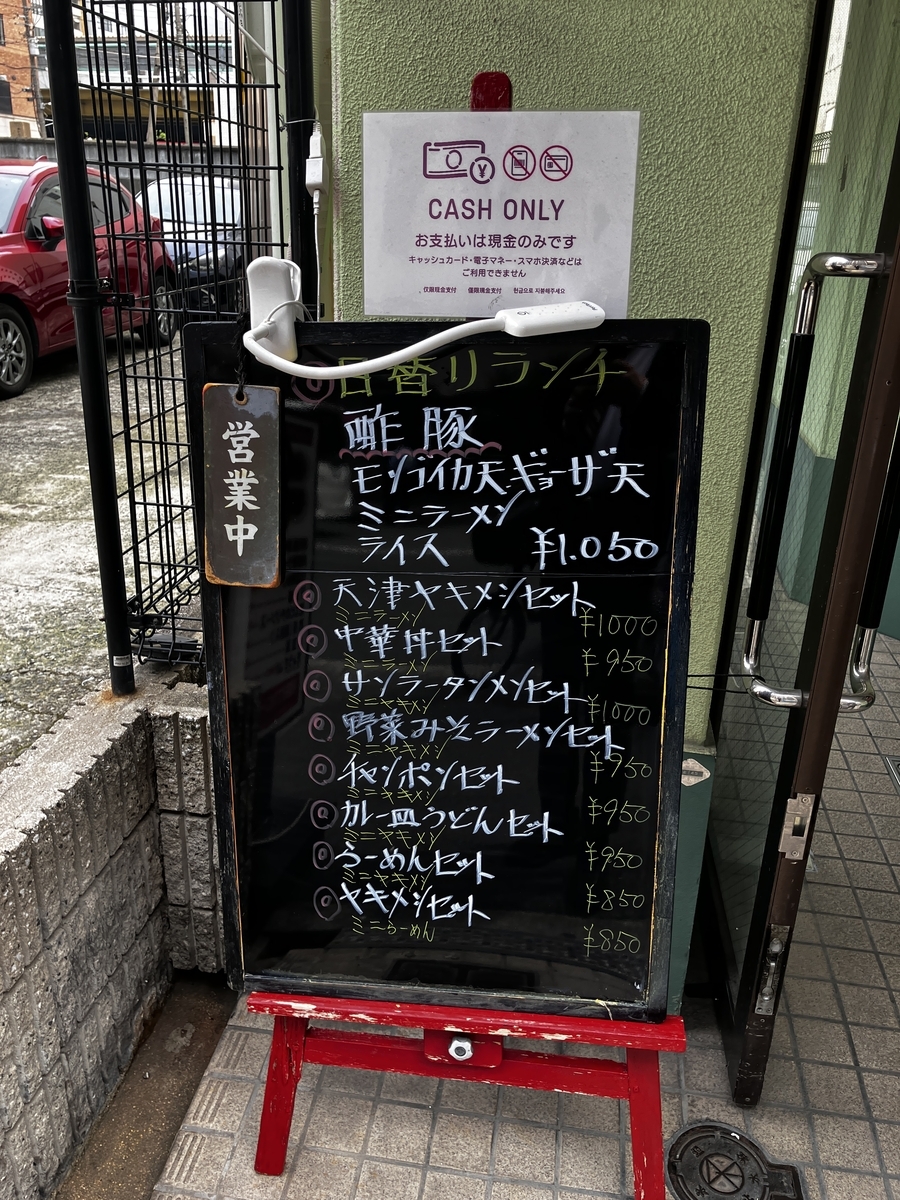 CASH ONLY
お支払いは現金のみです
キャッシュカード・電子マネー・スマホ決済などは
ご利用できません
仅限现金支付 僅限現金支付 현금으로 지불해주세요
営業中
日替リランチ
酢豚
モンゴイカ天ギョーザ天
ミニラーメン
ライス ¥1.050
天津ヤキメシセット
ミニラーメン ¥1000
中華丼セット
ミニラーメン ¥950
サンラータンメンセット
ミニヤキメシ ¥1000
野菜みそラーメンセット
ミニヤキメシ ¥950
チャンポンセット
ミニヤキメシ ¥950
カレー皿うどんセット
ミニヤキメシ ¥950
らーめんセット
ミニヤキメシ ¥850
ヤキメシセット
ミニらーめん ¥850